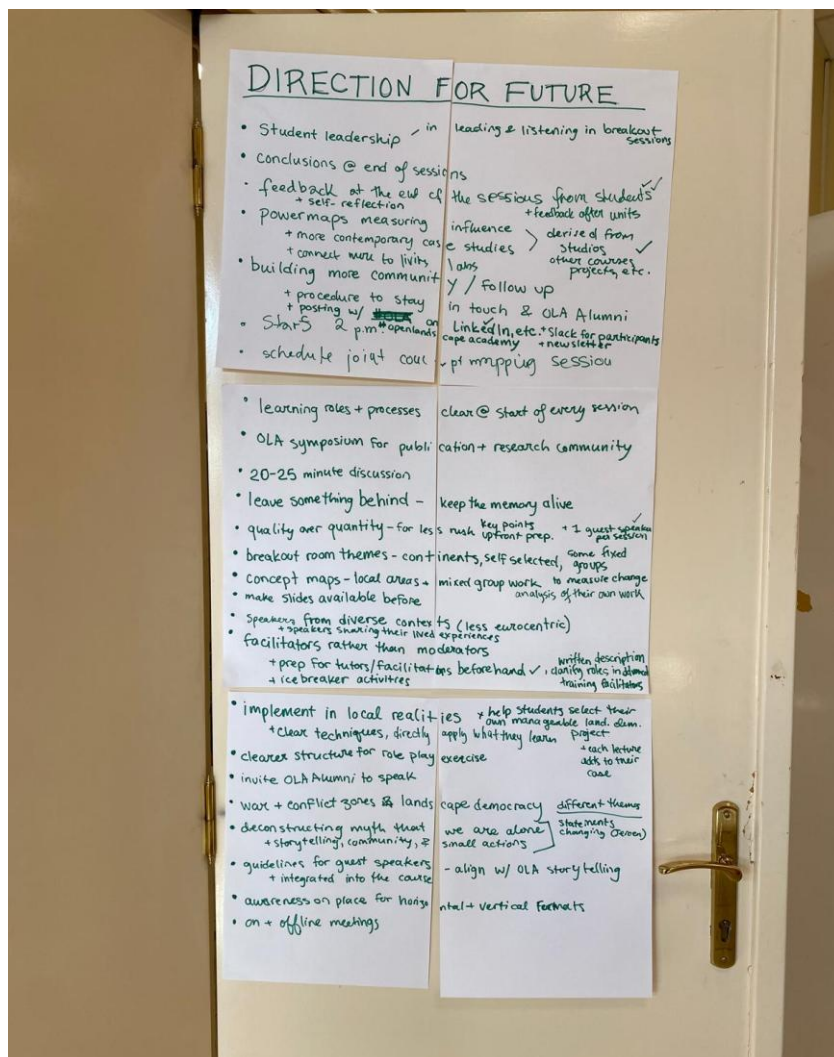 DIRECTION FOR FUTURE
• Student leadership – in leading & listening in breakout sessions
• conclusions @ end of sessions
• feedback at the end of the sessions from students ✓✓
+ self-reflection + feedback after units
• powermaps measuring influence
+ more contemporary case studies > derived from studios ✓ other courses projects, etc.
+ connect more to living labs
• building more community / follow up
+ procedure to stay in touch & OLA Alumni
+ posting w/ on LinkedIn, etc. + Slack for participants
#openlandscape academy + newsletter
• Start 2 p.m.
• schedule joint concept mapping session
• learning roles + processes clear @ start of every session
• OLA symposium for publication + research community
• 20-25 minute discussion
• leave something behind – keep the memory alive
• quality over quantity – for less rush key points upfront prep. + 1 guest speaker per session ✓
• breakout room themes – continents, self selected, some fixed groups
• concept maps – local areas + mixed group work to measure change
analysis of their own work
• make slides available before
• speakers from diverse contexts (less eurocentric)
+ speakers sharing their lived experiences
• facilitators rather than moderators
+ prep for tutors/facilitators beforehand ✓, written description clarify roles in training facilitators
+ icebreaker activities
• implement in local realities + help students select their own manageable land. dem. project
+ clear techniques, directly apply what they learn
+ each lecture adds to their case
• clearer structure for role play exercise
• invite OLA Alumni to speak
• war + conflict zones & landscape democracy different themes
• deconstructing myth that we are alone
+ storytelling, community, & small actions
statements changing
• guidelines for guest speakers – align w/ OLA storytelling
+ integrated into the course
• awareness on place for horizontal + vertical formats
• on + offline meetings